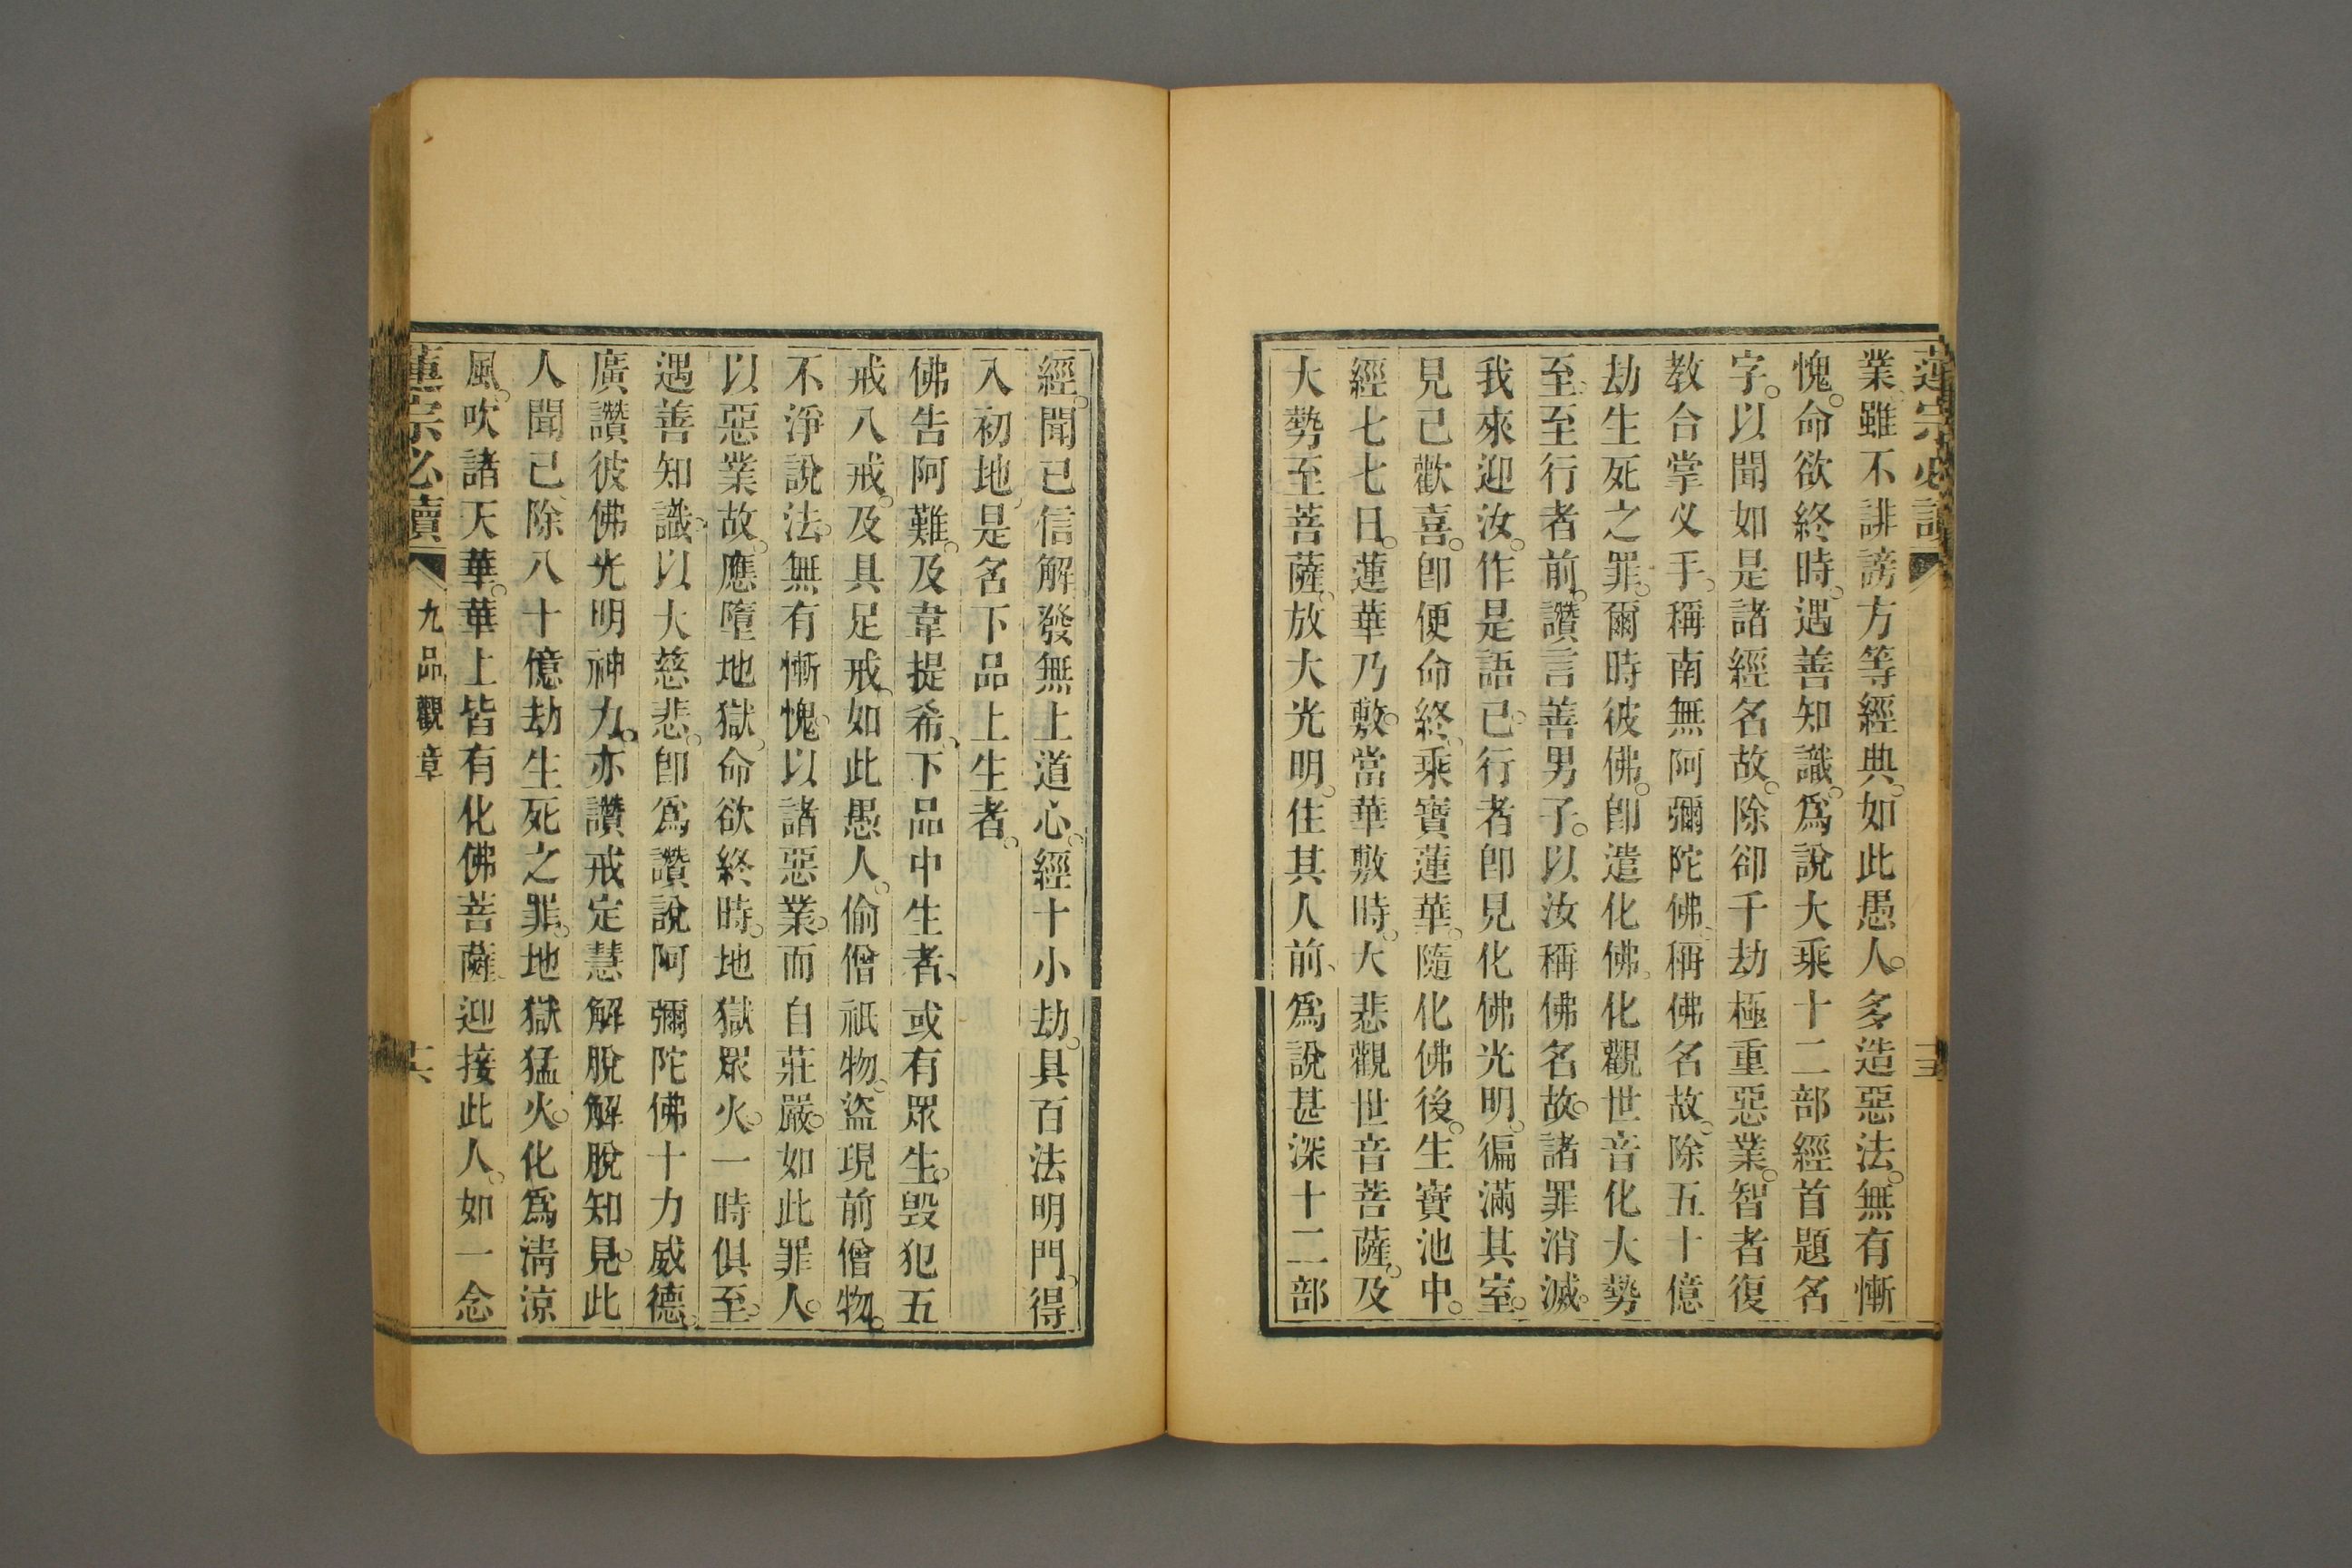 蓮宗必讀
十五
業雖不誹謗方等經典。如此愚人。多造惡法。無有慚
愧。命欲終時。遇善知識。爲說大乘十二部經首題名
字。以聞如是諸經名故。除卻千劫極重惡業。智者復
教合掌叉手。稱南無阿彌陀佛。稱佛名故。除五十億
劫生死之罪。爾時彼佛。卽遣化佛。化觀世音化大勢
至。至行者前。讚言善男子。以汝稱佛名故。諸罪消滅。
我來迎汝。作是語已。行者卽見化佛光明。徧滿其室。
見已歡喜。卽便命終。乘寶蓮華。隨化佛後。生寶池中。
經七七日。蓮華乃敷。當華敷時。大悲觀世音菩薩。及
大勢至菩薩。放大光明。住其人前、爲說甚深十二部
經。聞已信解發無上道心。經十小劫。具百法明門。得
入初地、是名下品上生者。
佛告阿難。及韋提希、下品中生者、或有眾生。毀犯五
戒八戒。及具足戒、如此愚人。偷僧祇物。盜現前僧物。
不淨說法。無有慚愧。以諸惡業。而自莊嚴。如此罪人。
以惡業故。應墮地獄。命欲終時。地獄眾火。一時俱至。
遇善知識、以大慈悲。卽爲讚說阿彌陀佛十力威德。
廣讚彼佛光明神力。亦讚戒定慧解脫解脫知見。此
人聞已、除八十億劫生死之罪。地獄猛火。化爲清涼
風。吹諸天華。華上皆有化佛菩薩、迎接此人。如一念
蓮宗必讀
九品觀章
十六